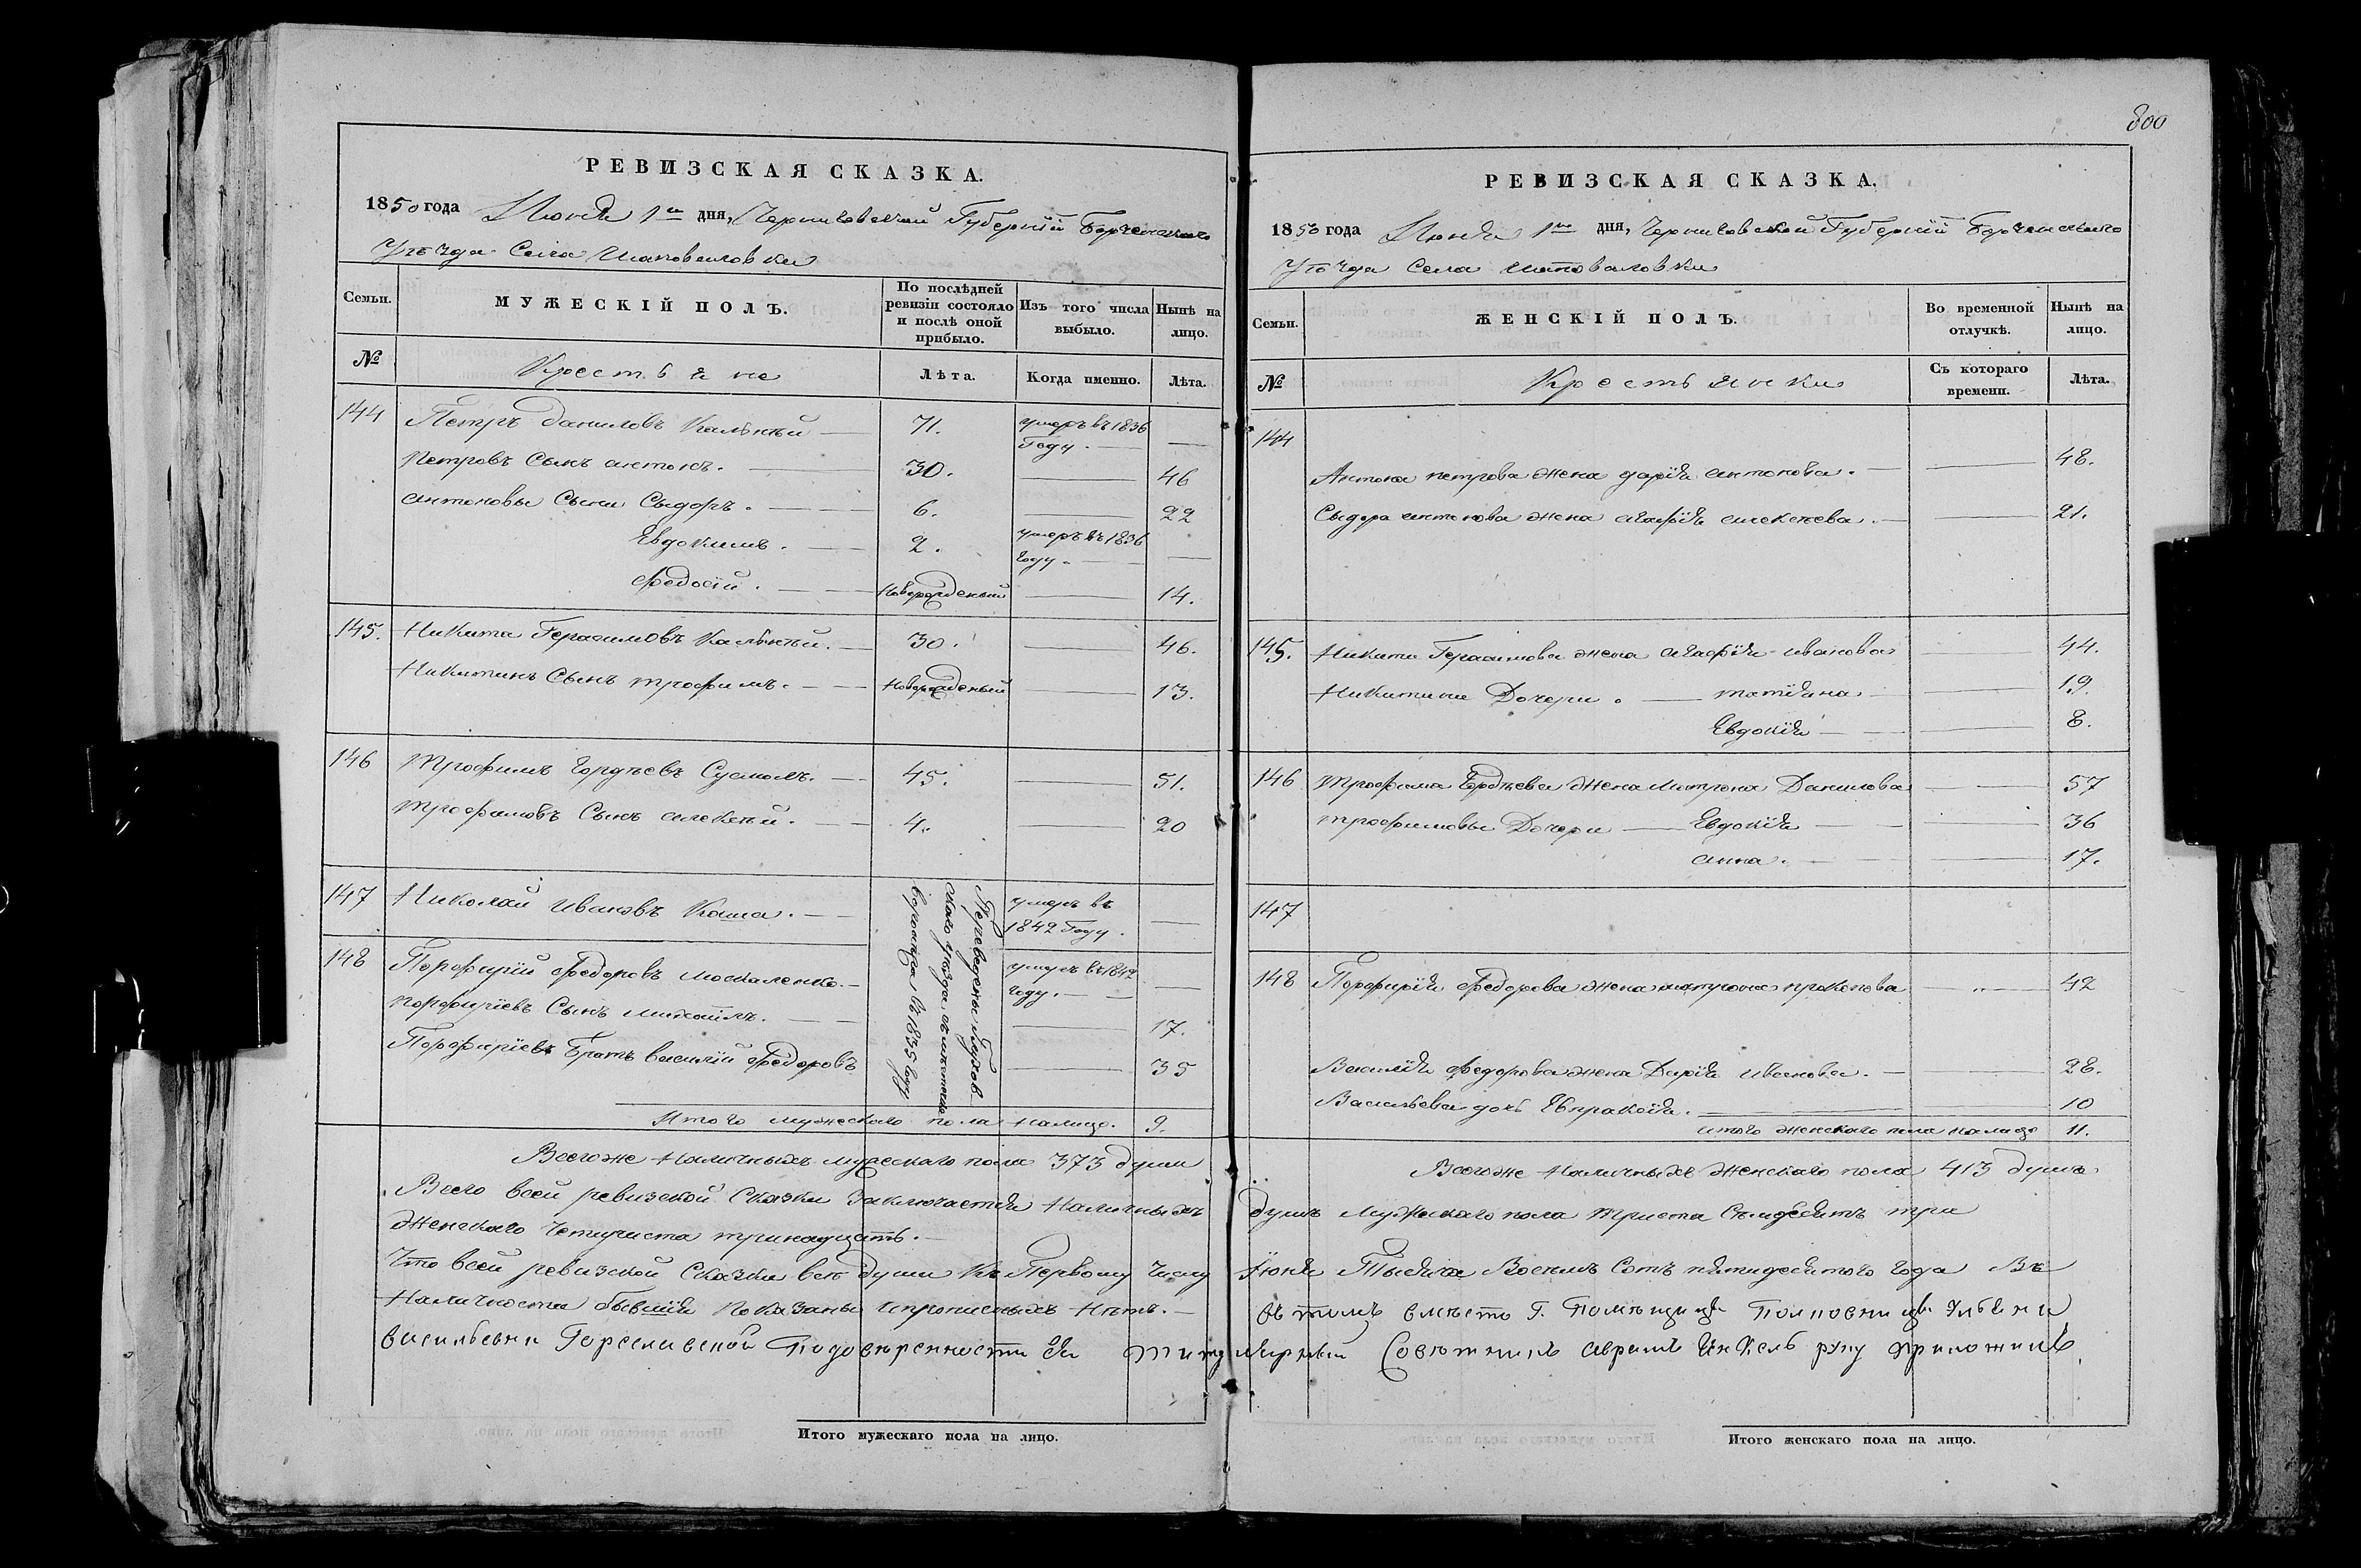 800
РЕВИЗСКАЯ СКАЗКА.
1850 года Июня 1го дня, Черниговской Губерніи Борзенскаго
Уѣзда Села Шаповаловки
Семьи. МУЖЕСКІЙ ПОЛЪ. По послѣдней ревизіи состояло и послѣ оной прибыло. Изъ того числа выбыло. Нынѣ на лицо.
№ Крестьяне Лѣта. Когда именно. Лѣта.
144 Петръ Даниловъ 71. умеръ въ 1836 Году.
Петровъ Сынъ антонъ. 30. 46
антоновы Сыни Сыдоръ. 6. 22
Евдокимъ. 2. умеръ въ 1836 году.
Федосій. Новорожденый 14.
145. Никита Герасимовъ 30. 46.
Никитинъ Сынъ трофимъ. Новорожденый 13.
146 Трофимъ Гордѣевъ 45. 51.
трофимовъ Сынъ алексѣй. 4. 20
147 Николай Ивановъ Каша. умеръ въ 1842 Году.
148 Порфирій Федоровъ москаленко. умеръ въ 1842 году.
порфиріевъ Сынъ михаилъ. 17.
Порфиріевъ Братъ василій Федоровъ 35
Переведены Глухов
скаго уѣзда съ
въ 1835 году
Итого мужескаго пола налицо. 9.
Всегоже Наличныхъ мужескаго пола 373 души
Всего всей ревизской Сказки Заключается Наличныхъ
Женскаго четыриста тринадцать.
Что всей ревизской Сказки всѣ души Къ Первому Числу
Наличности бывшія показаны и прописныхъ нѣтъ.
васильевни По довѣренности Ея Титу
Итого мужескаго пола на лицо.
РЕВИЗСКАЯ СКАЗКА.
1850 года Июня 1го дня, Черниговской Губерніи Борзенскаго
Уѣзда Села Шаповаловки
Семьи. ЖЕНСКІЙ ПОЛЪ. Во временной отлучкѣ. Нынѣ на лицо.
№ Крестьянки Съ котораго времени. Лѣта.
144
Антона петрова жена дарія антонова. 48.
Сыдора антонова жена агафія алексѣева. 21.
145. Никити Герасимова жена агафія иванова 44.
Никитини Дочери. татіяна 19.
Евдокія 8.
146 Трофима Гордѣева Жена Матрона Данилова 57
трофимовы Дочери Евдокія 36
анна. 17.
147
148 Порфирія Федорова жена матрона прокопова 42
Василія федорова жена Дарія иванова. 28.
Васильева дочь Евпраксія. 10
итого женскаго пола налицо 11.
Всегоже Наличныхъ Женскаго пола 413 душъ
душъ Мужескаго пола Триста Семдесятъ три
Июня Тысяча Восемь Сотъ пятидесятого Года Въ
въ томъ вмѣсто Г. Помѣщици
лярный Совѣтникъ руку приложилъ
Итого женскаго пола на лицо.